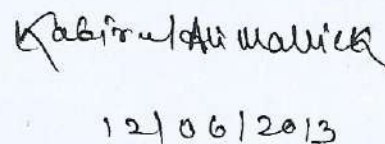 Kabirul Ali Mallick
12/06/2013